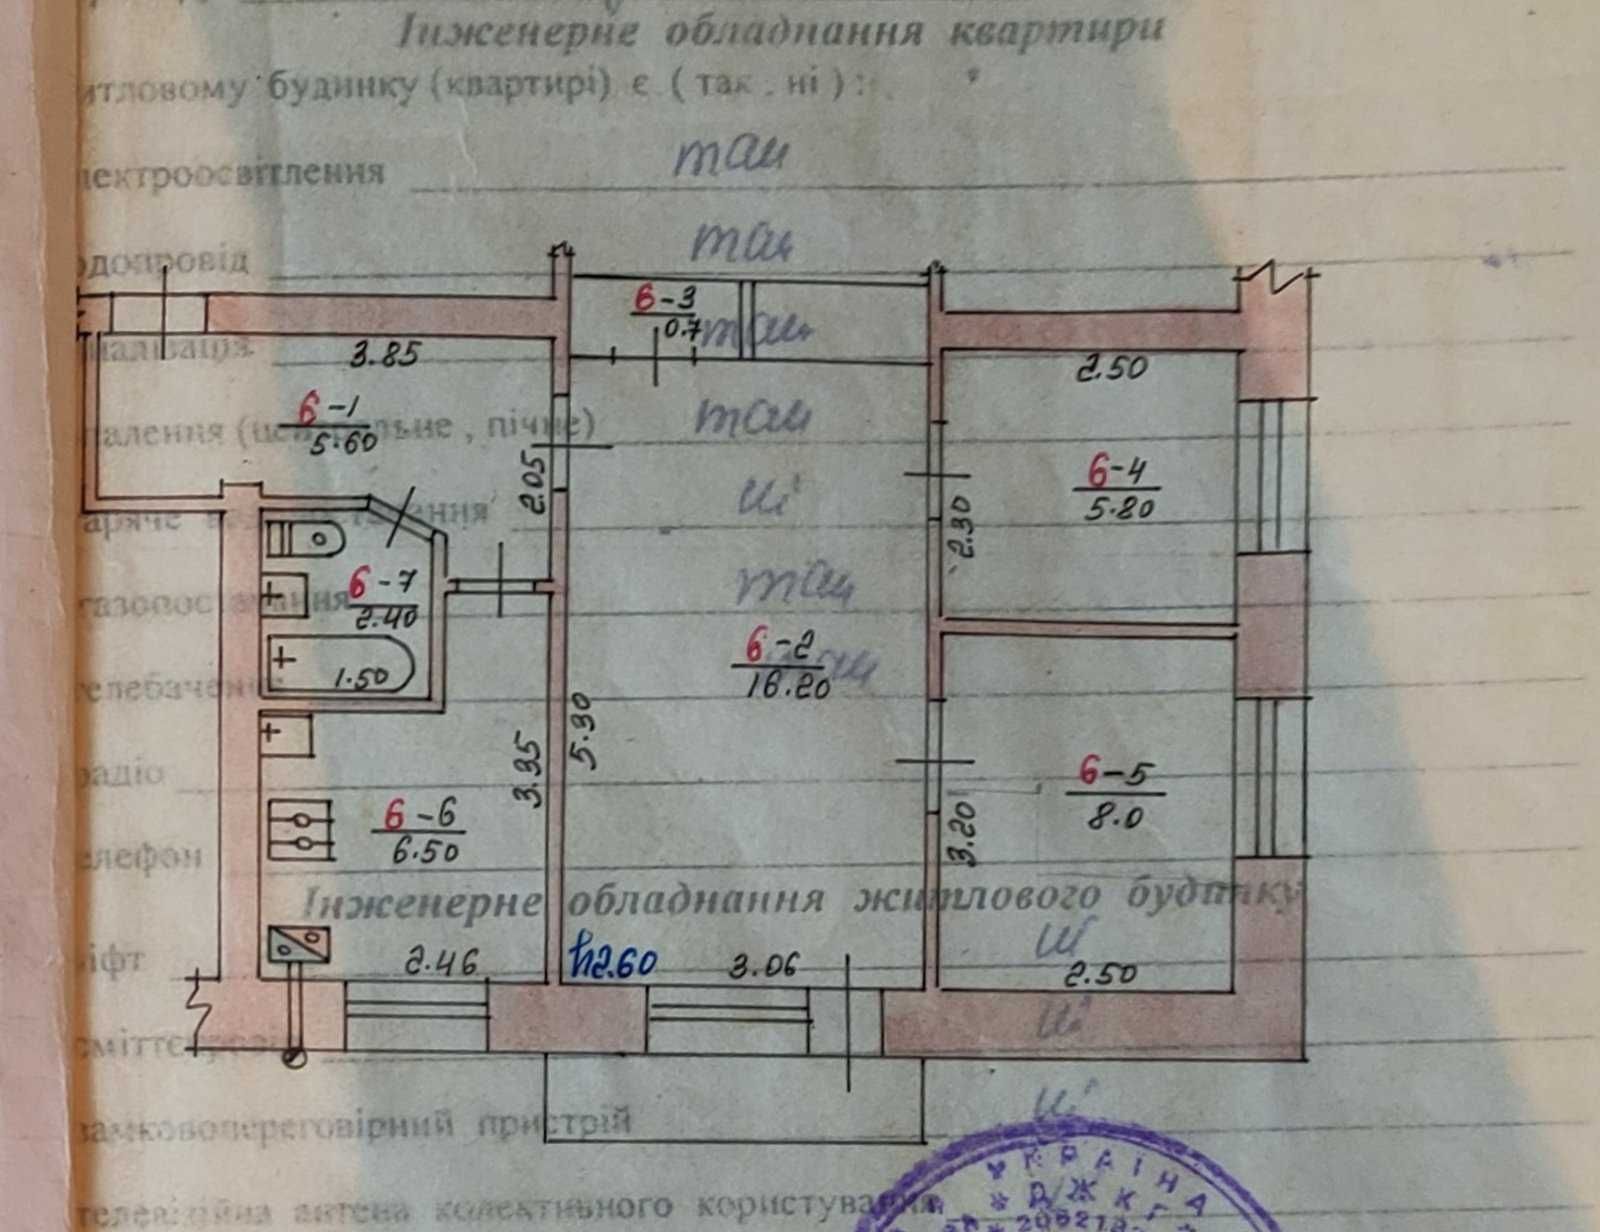 Інженерне обладнання квартири
итловому будинку (квартирі) є ( так . ні ) :
лектроосвітлення так
одопровід так
6-3
0.7 так
налізація
3.85
2.50
6-1
5.60
алення (це льне , пічне) так
6-4
5.80
2.05
2.30
ні
аряче
6-7
2.40
газопостачання так
6-2
16.20
1.50
елебачення
5.30
3.35
адіо
6-5
8.0
3.20
6-6
6.50
елефон
Інженерне обладнання житлового будинку
іфт ні
2.46
h2.60
3.06
2.50
ні
замковопереговірний пристрій ні
УКРАЇНА
телевізійна антена колективного користування